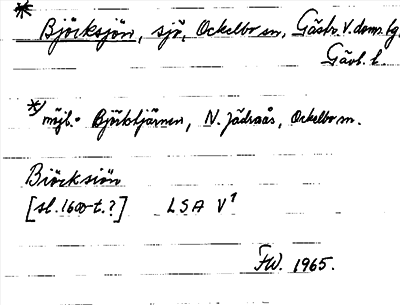 * Björksjön, sjö, Ockelbo sn, Gästr. V. doms. tg.
Gävl. l.
*) möjl. Björktjärnen, N. Jädraås, Ockelbo sn.
Biörcksiön
[sl. 1600-t.?] LSA V1
FW. 1965.